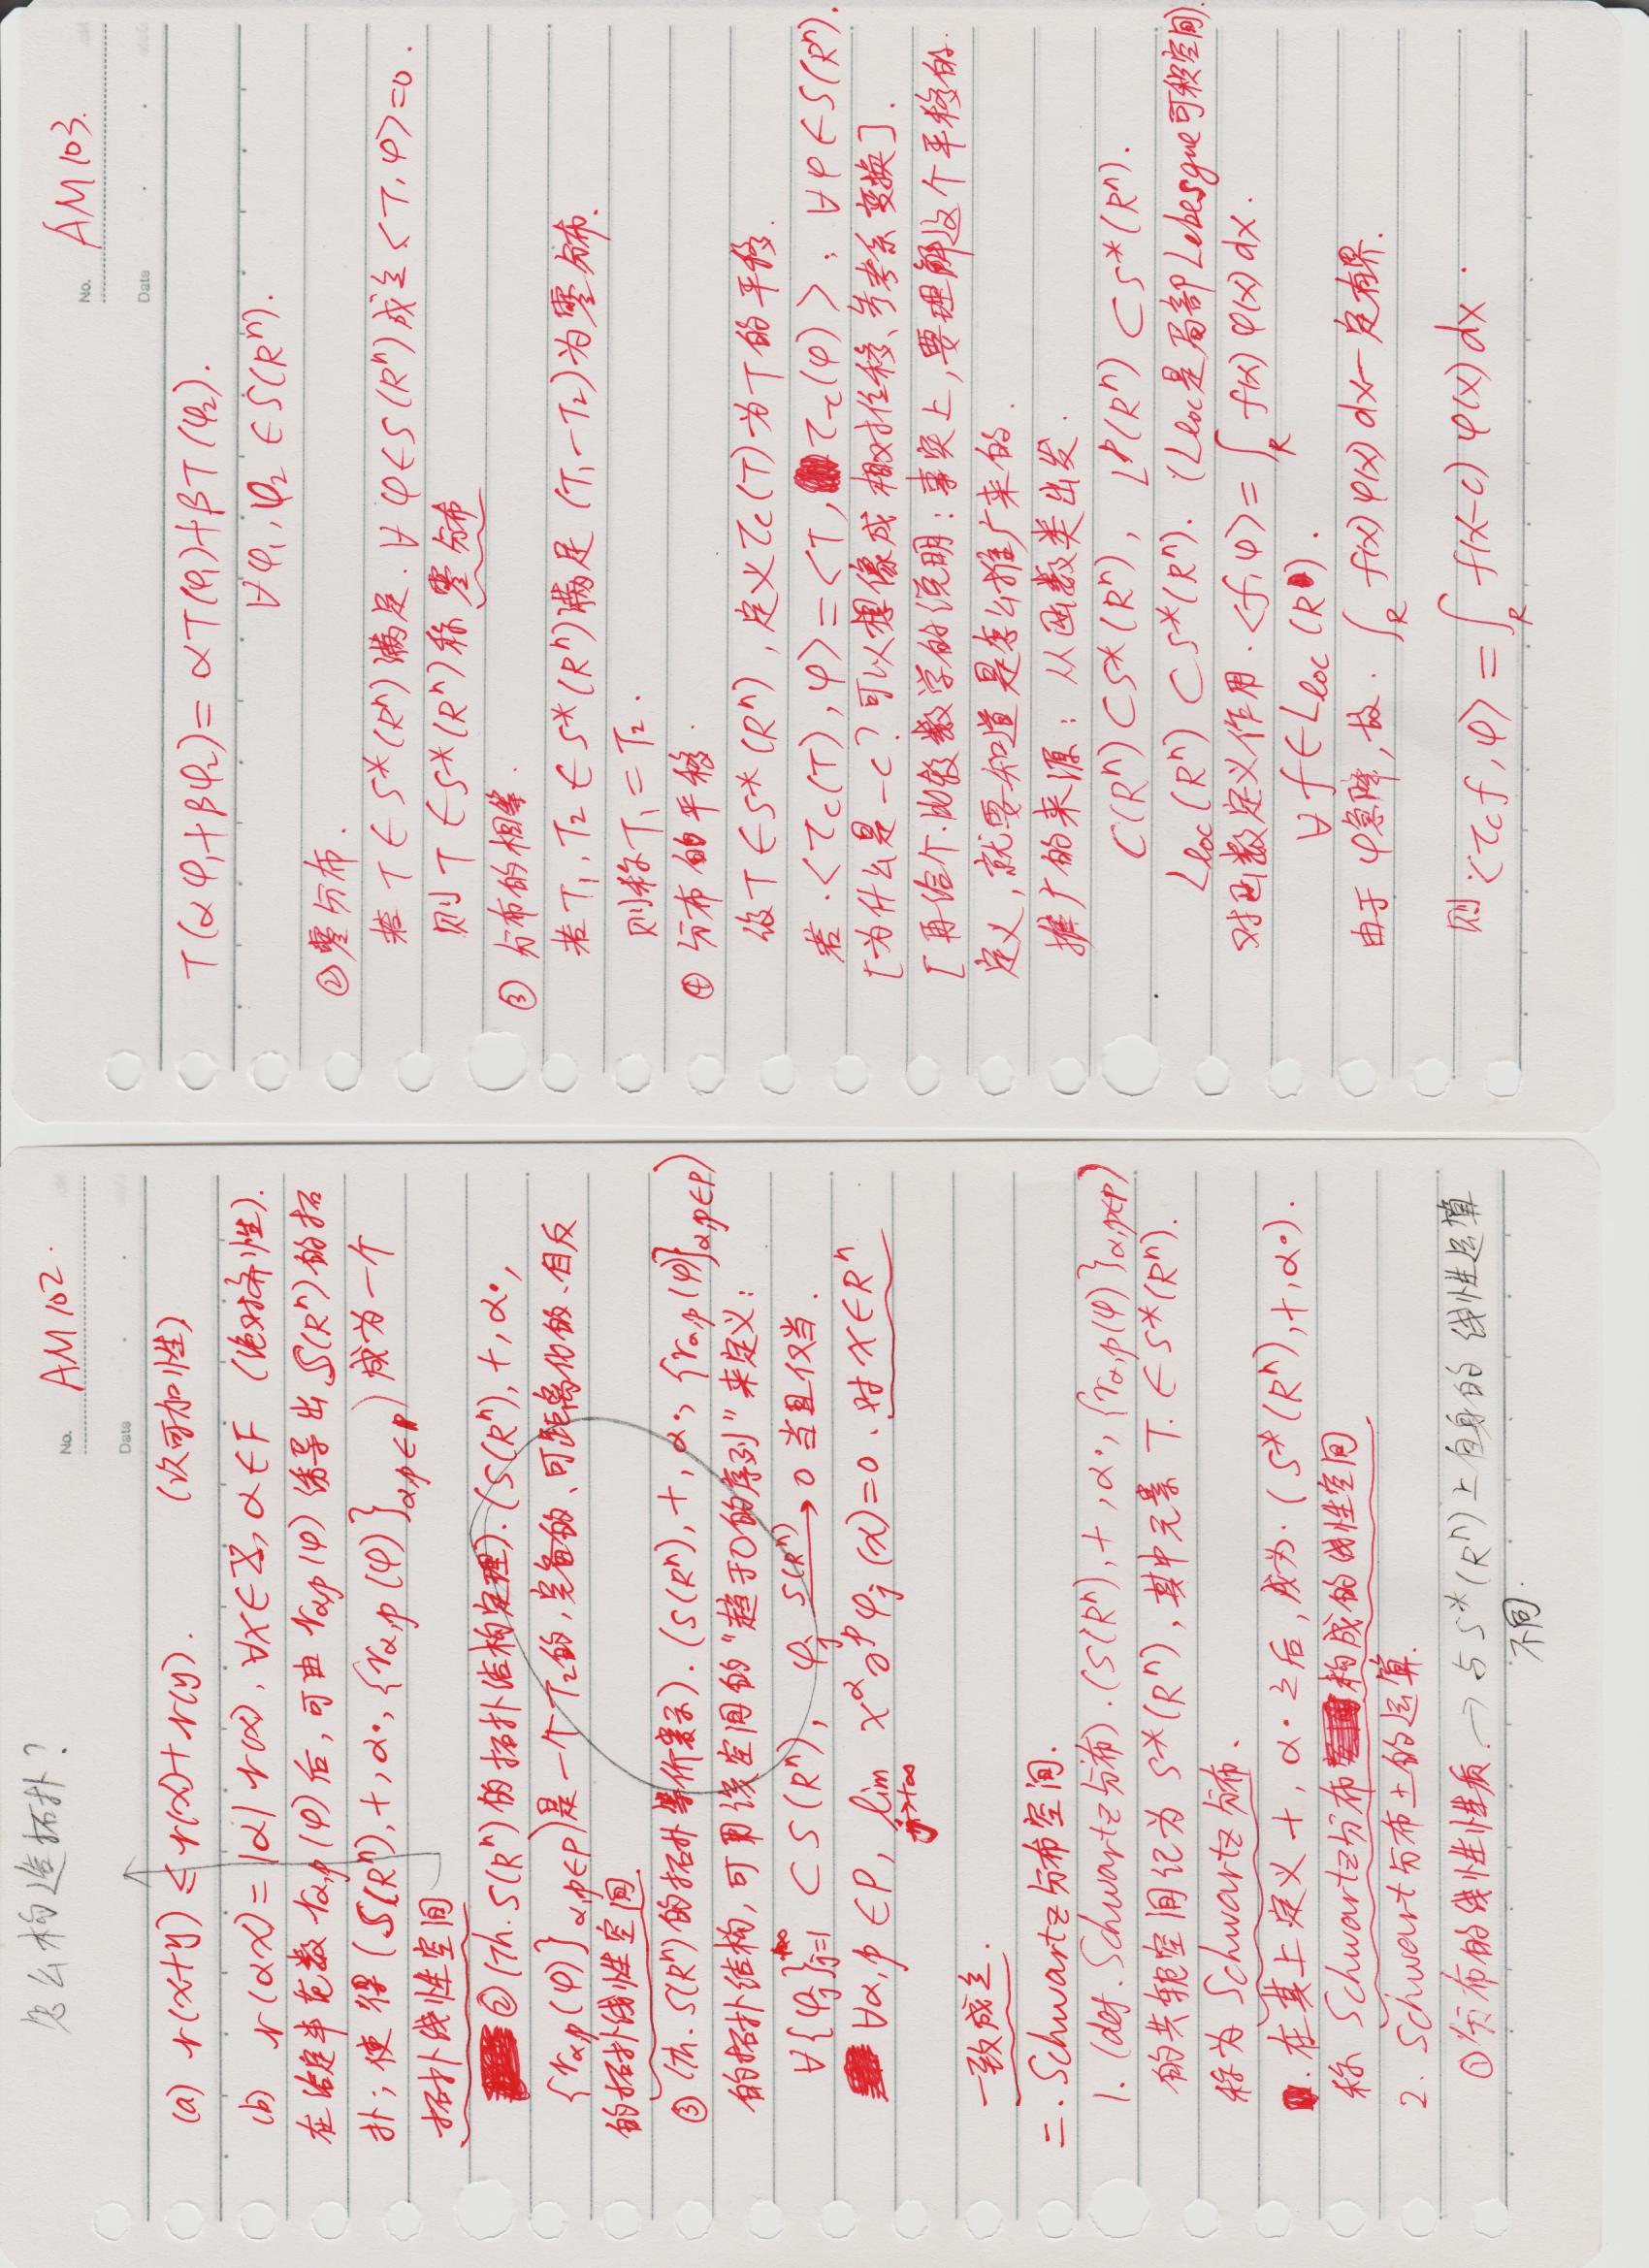 怎么构造拓扑?
No. AM 102.
Date
(a) r(x+y) ≤ r(x)+r(y). (次可加性)
(b) r(αx)=|α| r(x), ∀x∈X, α∈F (绝对齐性).
在给定半范数 r_{α,p}(φ) 后, 可由 r_{α,p}(φ) 诱导出 S(Rⁿ) 的拓
扑; 使得 (S(Rⁿ), +, α·, {r_{α,p}(φ)}_{α,p∈P}) 成为一个
拓扑线性空间
② (Th. S(Rⁿ) 的拓扑结构定理). (S(Rⁿ), +, α·,
{r_{α,p}(φ)}_{α,p∈P}) 是一个 T₂的, 完备的、可距离化的、自反
的拓扑线性空间
③ (Th. S(Rⁿ) 的拓扑等价表示). (S(Rⁿ), +, α·, {r_{α,p}(φ)}_{α,p∈P})
的拓扑结构, 可用该空间的“趋于0的序列”来定义:
∀{φ_j}_{j=1}^{+∞} ⊂ S(Rⁿ), φ_j —S(Rⁿ)→ 0 当且仅当.
∀α,p ∈P, lim_{j→+∞} x^α ∂^p φ_j(x)=0、对 x∈Rⁿ
一致成立.
二. Schwartz分布空间.
1. (def. Schwartz分布). (S(Rⁿ), +, α·, {r_{α,p}(φ)}_{α,p∈P})
的共轭空间记为 S*(Rⁿ), 其中元素 T. ∈ S*(Rⁿ).
称为 Schwartz分布.
在其上定义 +, α· 之后, 成为. (S*(Rⁿ), +, α·).
称 Schwartz分布构成的线性空间
2. Schwart分布上的运算.
①分布的线性性质 → 与 S*(Rⁿ) 上自身的 线性运算
不同.
No. AM 103.
Date
T(αφ₁+βφ₂)= αT(φ₁)+βT(φ₂).
∀φ₁, φ₂ ∈S(Rⁿ).
②零分布.
若 T ∈ S*(Rⁿ) 满足. ∀φ∈S(Rⁿ)成立<T, φ>=0.
则 T ∈S*(Rⁿ) 称 零分布
③ 分布的相等.
若 T₁, T₂ ∈ S*(Rⁿ)满足 (T₁-T₂)为零分布.
则称T₁ = T₂.
④ 分布的平移.
设T ∈S*(Rⁿ), 定义τ_c(T)为T的平移.
若. <τ_c(T), φ> = <T, τ_{-c}(φ)>, ∀φ∈S(Rⁿ).
[为什么是 -c? 可以想像成 相对位移、参考系变换].
[再给个比较数学的说明: 事实上, 要理解这个平移的.
定义, 就要知道是怎么推广来的.
推广的来源: 从函数类出发.
C(Rⁿ)⊂S*(Rⁿ), L^p(Rⁿ) ⊂S*(Rⁿ).
L_loc(Rⁿ) ⊂ S*(Rⁿ). (L_loc是局部Lebesgue可积空间).
对函数定义作用. <f, φ> = ∫_R f(x) φ(x) dx.
∀f∈L_loc(R).
由于φ急降, 故. ∫_R f(x) φ(x) dx一定有界.
则 <τ_c f, φ> = ∫_R f(x-c) φ(x) dx.